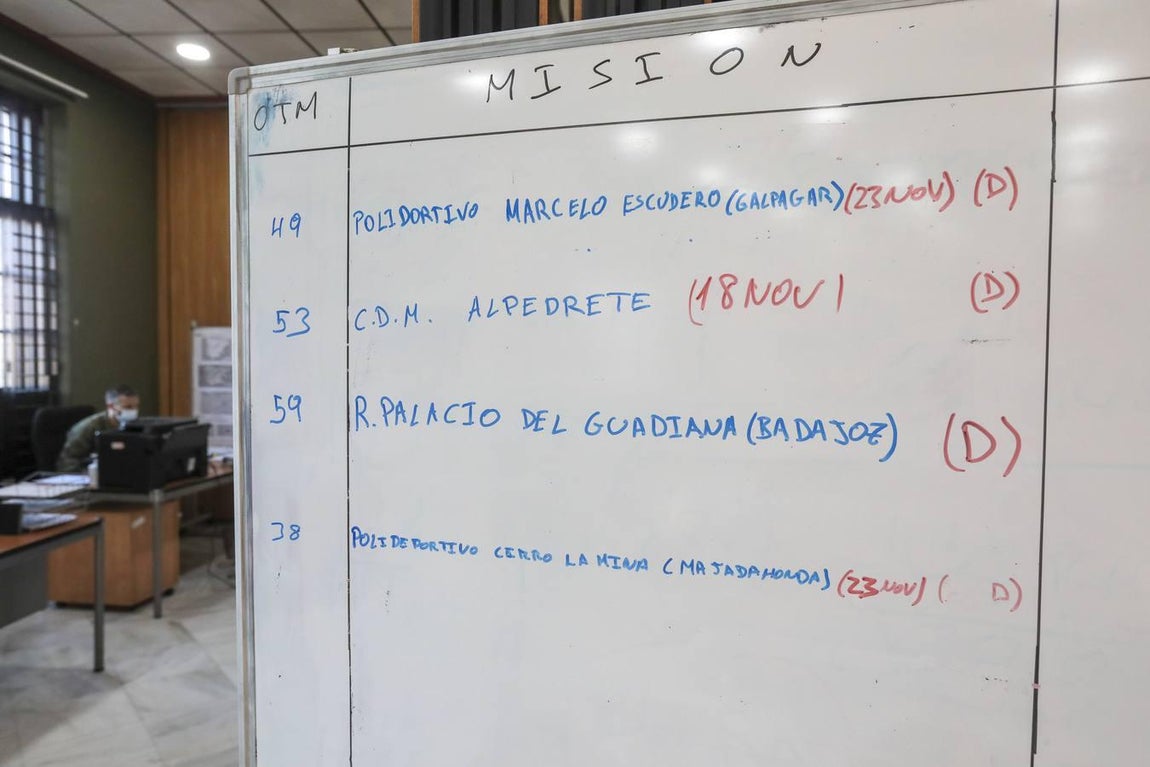 OTM MISION
49 POLIDORTIVO MARCELO ESCUDERO (GALPAGAR) (23 NOV) (D)
53 C.D.M. ALPEDRETE (18 NOV) (D)
59 R. PALACIO DEL GUADIANA (BADAJOZ) (D)
38 POLIDEPORTIVO CERRO LA MINA (MAJADAHONDA) (23 NOV) ( D)